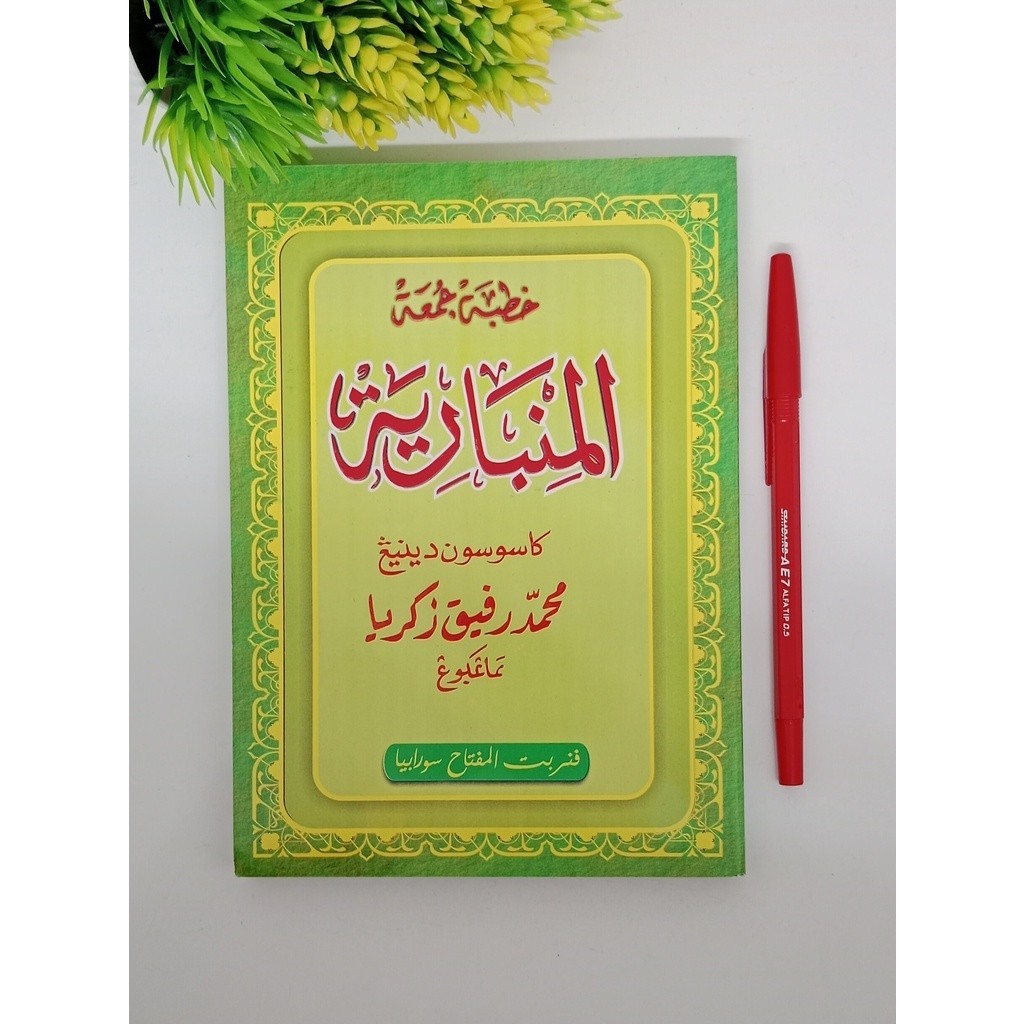 خطبة جمعة
المِنْبَارِيَة
كاسوسون دينيڠ
محمّد رفيق زكريا
نماڠكبوڠ
فنربت المفتاح سورابيا
Standard AE7 ALFATIP 0.5